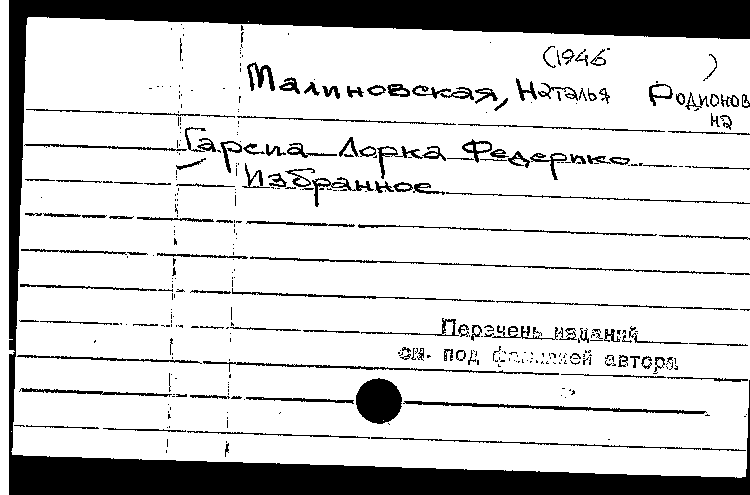 (1946 )
Малиновская, Наталья Родионов
на
Гарсиа Лорка Федерико.
Избранное.
Перечень изданий
см. под фамилией автора